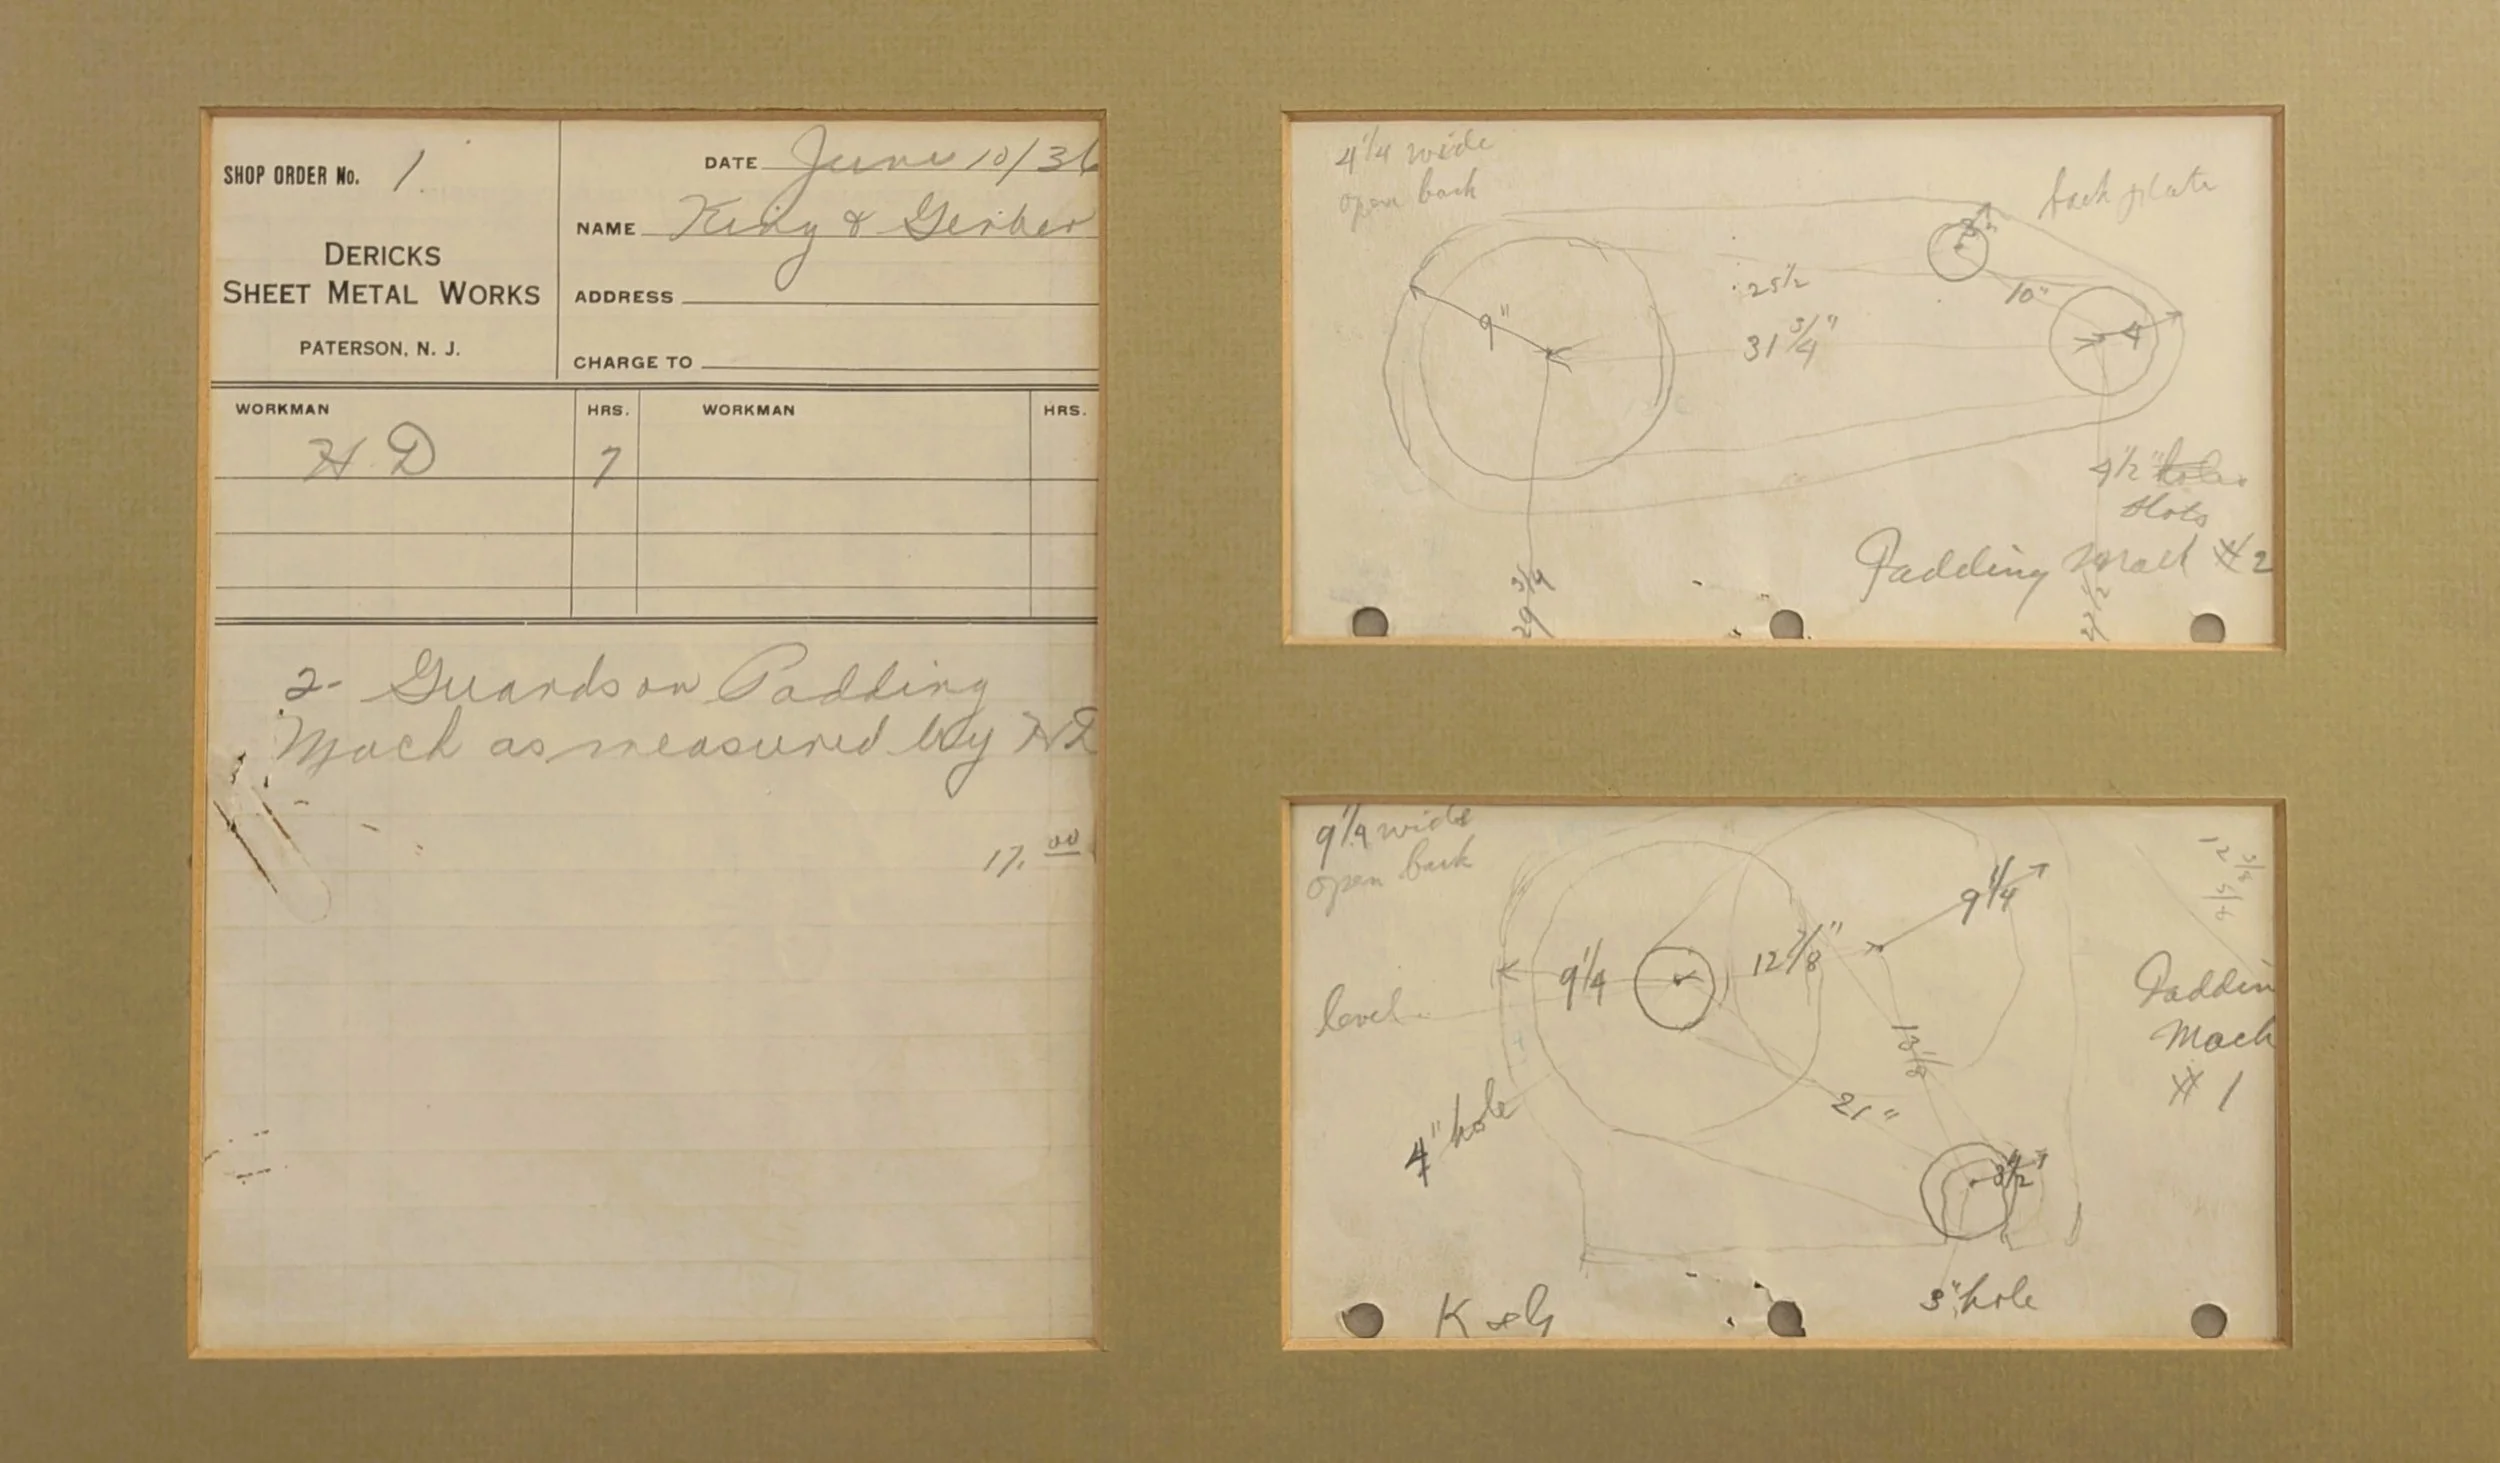 SHOP ORDER No. 1
DERICKS
SHEET METAL WORKS
PATERSON, N. J.
DATE June 10/36
NAME King & Gerber
ADDRESS
CHARGE TO
WORKMAN HRS. WORKMAN HRS.
H D 7
2- Guards on Padding
Mach as measured by HD
17.00
4 1/4 wide
open back
back plate
3"
9"
25 1/2
10"
31 3/4"
4
4 1/2" holes
slots
Padding Mach #2
29 3/4
9 1/4 wide
open back
9 1/4
12 3/8
5/8
9 1/4
12 7/8"
level
Paddin
Mach
# 1
13 1/8
21"
4" hole
3 1/2"
3" hole
K & G